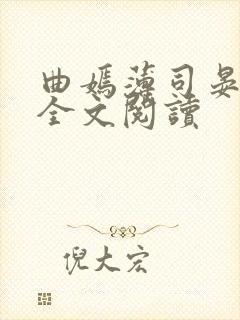 曲嫣薄司晏
全文閱讀
倪大宏